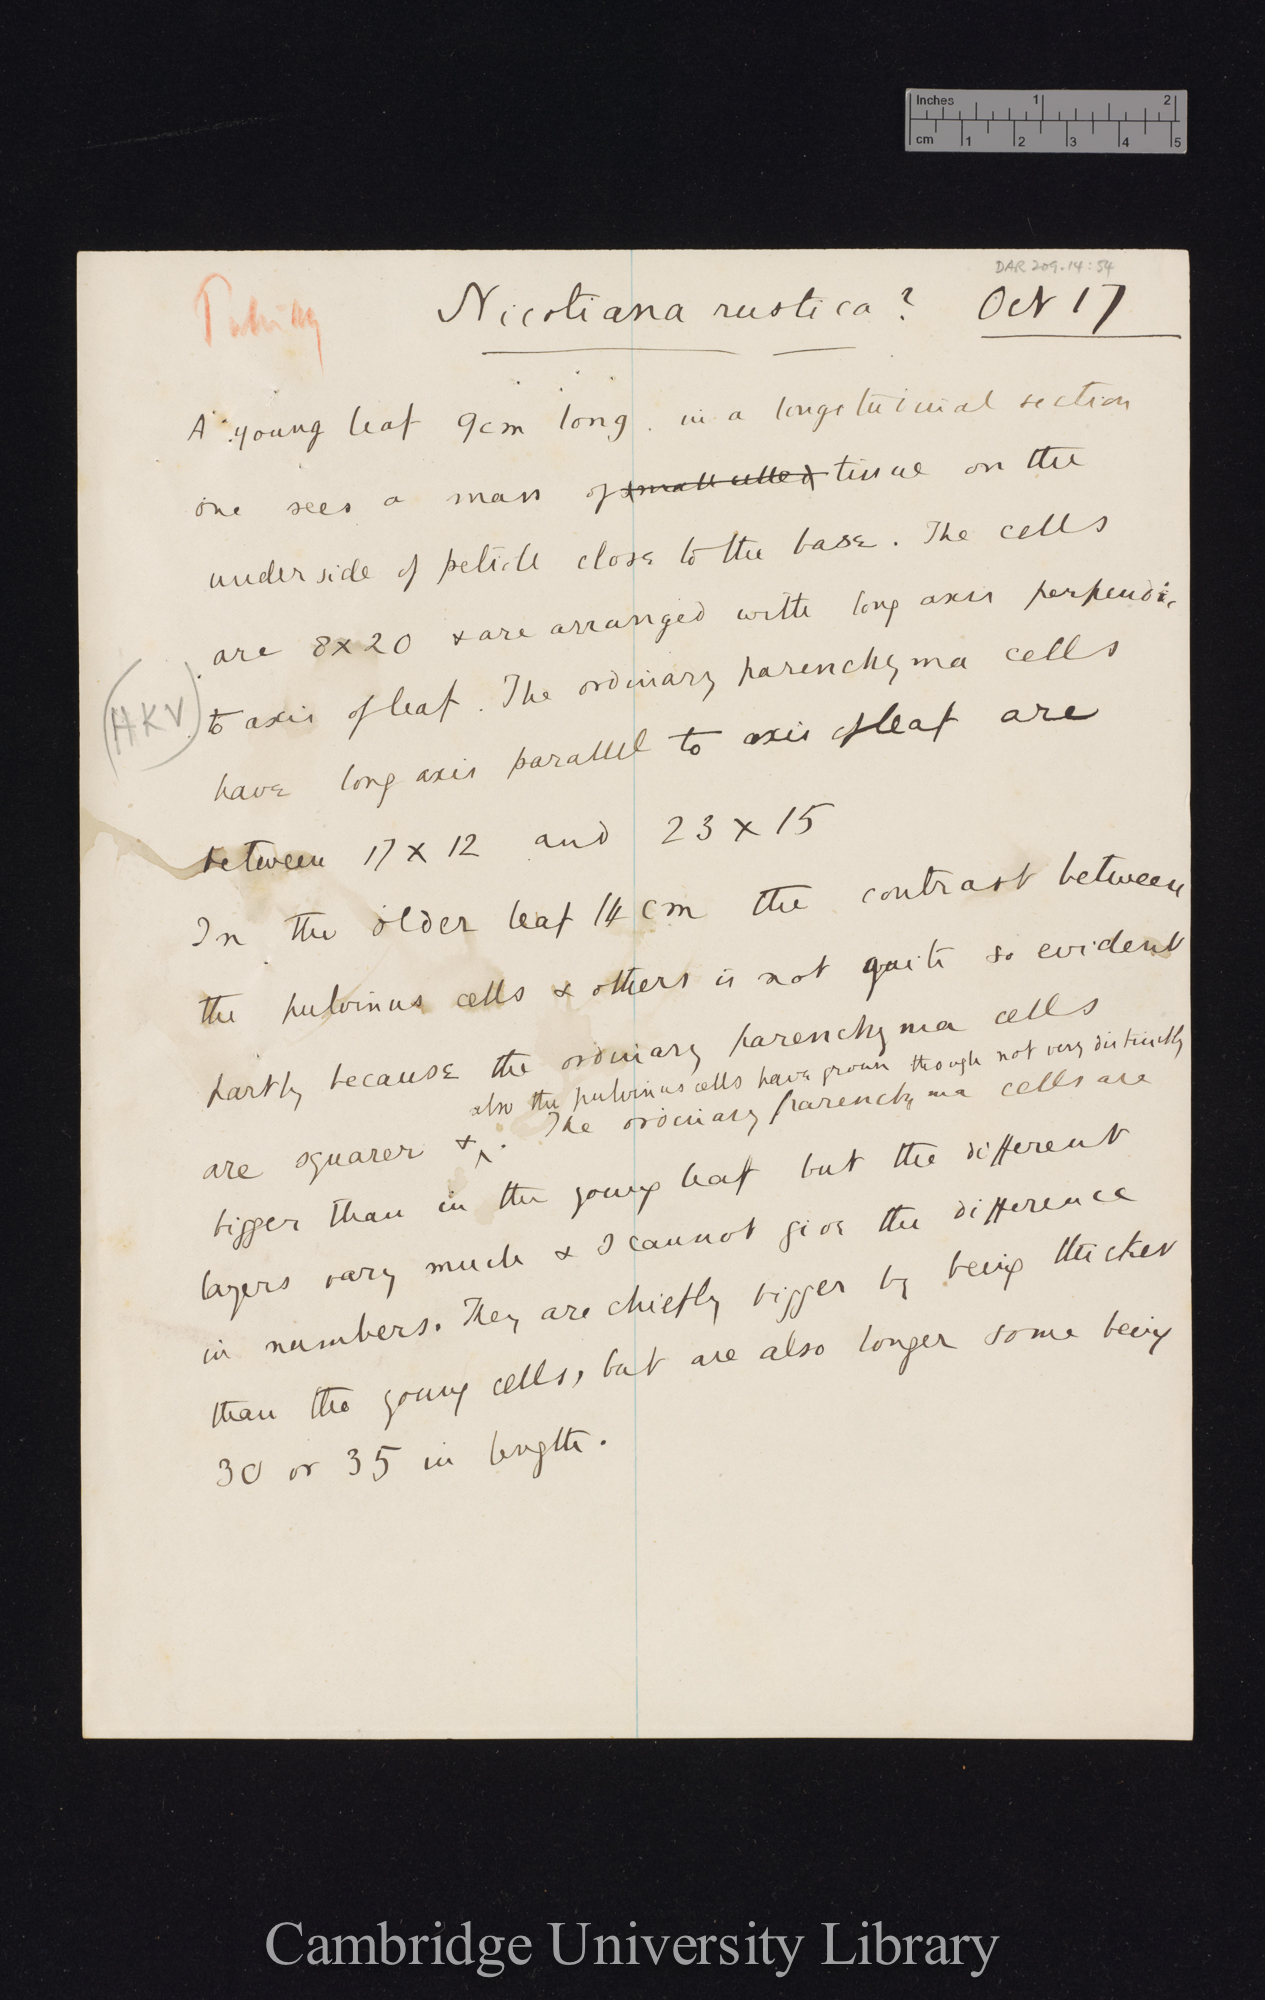 Inches 1 2
cm 1 2 3 4 5
DAR 209.14:54
Nicotiana rustica? Oct 17
A young leaf 9cm long. in a longetuiinal section
one sees a mass of small celled tissue on the
underside of petiole close to the base. The cells
are 8x20 & are arranged with long axis perpendic
(HKV)
to axis of leaf. The ordinary parenchyma cells
have long axis parallel to axis of leaf are
between 17 x 12 and 23 x 15
In the older leaf 14 cm the contrast between
the pulvinus cells & others is not quite so evident
partly because the ordinary parenchyma cells
also the pulvinus cells have grown though not very distinctly
are squarer & ^. The ordinary parenchyma cells are
bigger than in the young leaf but the different
layers vary much & I cannot give the difference
in numbers. They are chiefly bigger by being thicker
than the young cells, but are also longer some being
30 or 35 in length.
Cambridge University Library